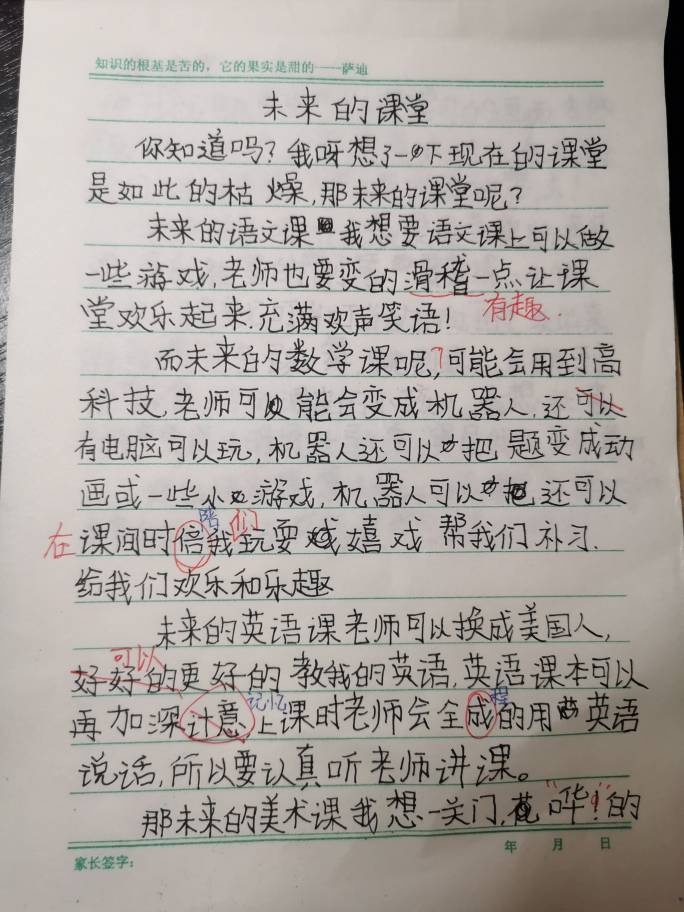 知识的根基是苦的，它的果实是甜的——萨迪
未来的课堂
你知道吗？我呀想了一下现在的课堂
是如此的枯燥,那未来的课堂呢？
未来的语文课 我想要语文课上可以做
一些游戏,老师也要变的滑稽一点让课
堂欢乐起来.充满欢声笑语！
有趣.
而未来的数学课呢,?可能会用到高
科技,老师可以能会变成机器人,还可以
有电脑可以玩,机器人还可以把题变成动
画或一些小游戏,机器人可以把还可以
陪 们
在课间时倍我玩耍或嬉戏 帮我们补习.
给我们欢乐和乐趣
未来的英语课老师可以换成美国人,
可以
好好的更好的教我的英语,英语课本可以
记忆 程
再加深计意上课时老师会全成的用英语
说话,所以要认真听老师讲课。
那未来的美术课我想一关门,花“哗！”的
家长签字：
年 月 日